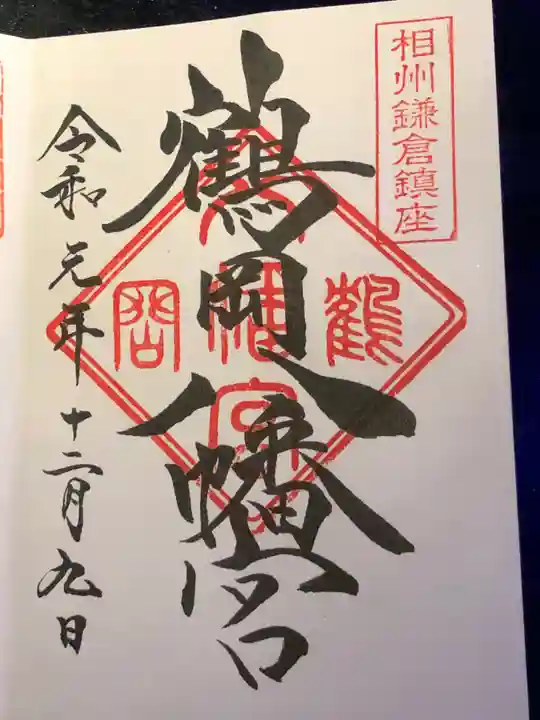 相州鎌倉鎮座
鶴岡八幡宮
鶴
八幡宮
岡
令和元年十二月九日